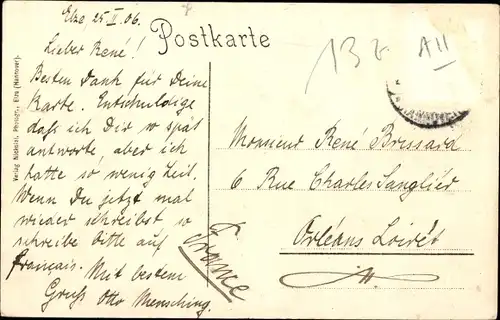 Elze, 25 II. 06.
Lieber René!
Besten Dank für Deine
Karte. Entschuldige
daß ich Dir so spät
antworte, aber ich
hatte so wenig Zeit.
Wenn Du jetzt mal
wieder schreibst so
schreibe bitte auf
français. Mit bestem
Gruß Otto Mensching.
Postkarte
13
A11
Monsieur René Brissard
6 Rue Charles Sanglier
Orléans Loirét
France
Photogr., Elze (Hannover).